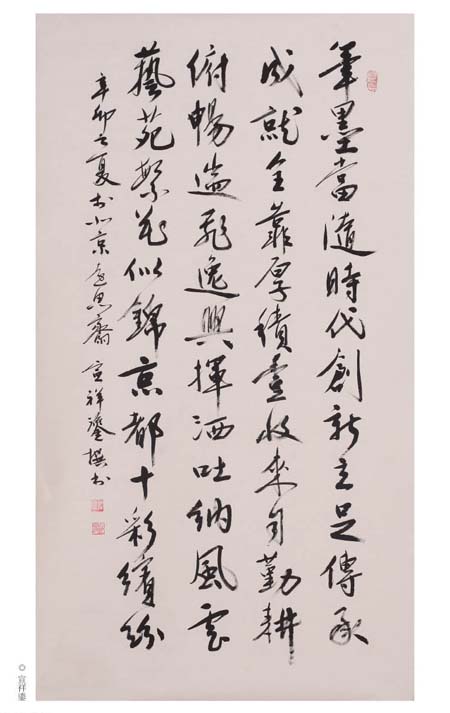 筆墨當隨時代創新立足傳承
成就全靠厚積豐收來自勤耕
俯暢遄飛逸興揮洒吐納風雲
藝苑繁花似錦京都十彩繽紛
辛卯之夏於北京思齋 宣祥鎏撰书
◎ 宣祥鎏